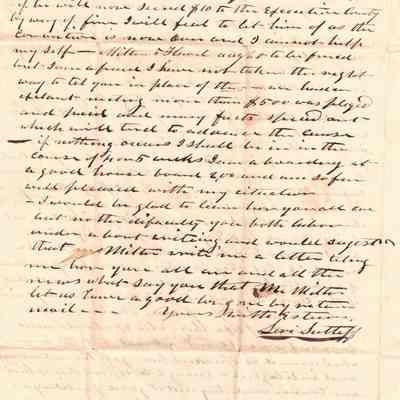 if he will now send $10 to the Executive County
by way of fine I will feel to let him of as the
Convention is now over and I cannot help
my self — Milton & Flavel ought to be fined
but I am afraid I have not taken the right
way to tell you in place of the — we had an
excelant meeting more than $500 was pleged
and paid and many facts spread out
which will tend to advance the cause
— if nothing occurs I shall be in in the
course of 4 or 5 weeks I am a boarding at
a good house board 200 and am so far
well pleased with my situation
— I would be glad to learn how you all are
but no the dificulty you both labor
under about writing and would sugest
that Milton write me a letter telling
me how your all are and all the
news what say you that Mr Milton
let us have a good long one by return
mail — Yours in the
Levi Sutliff